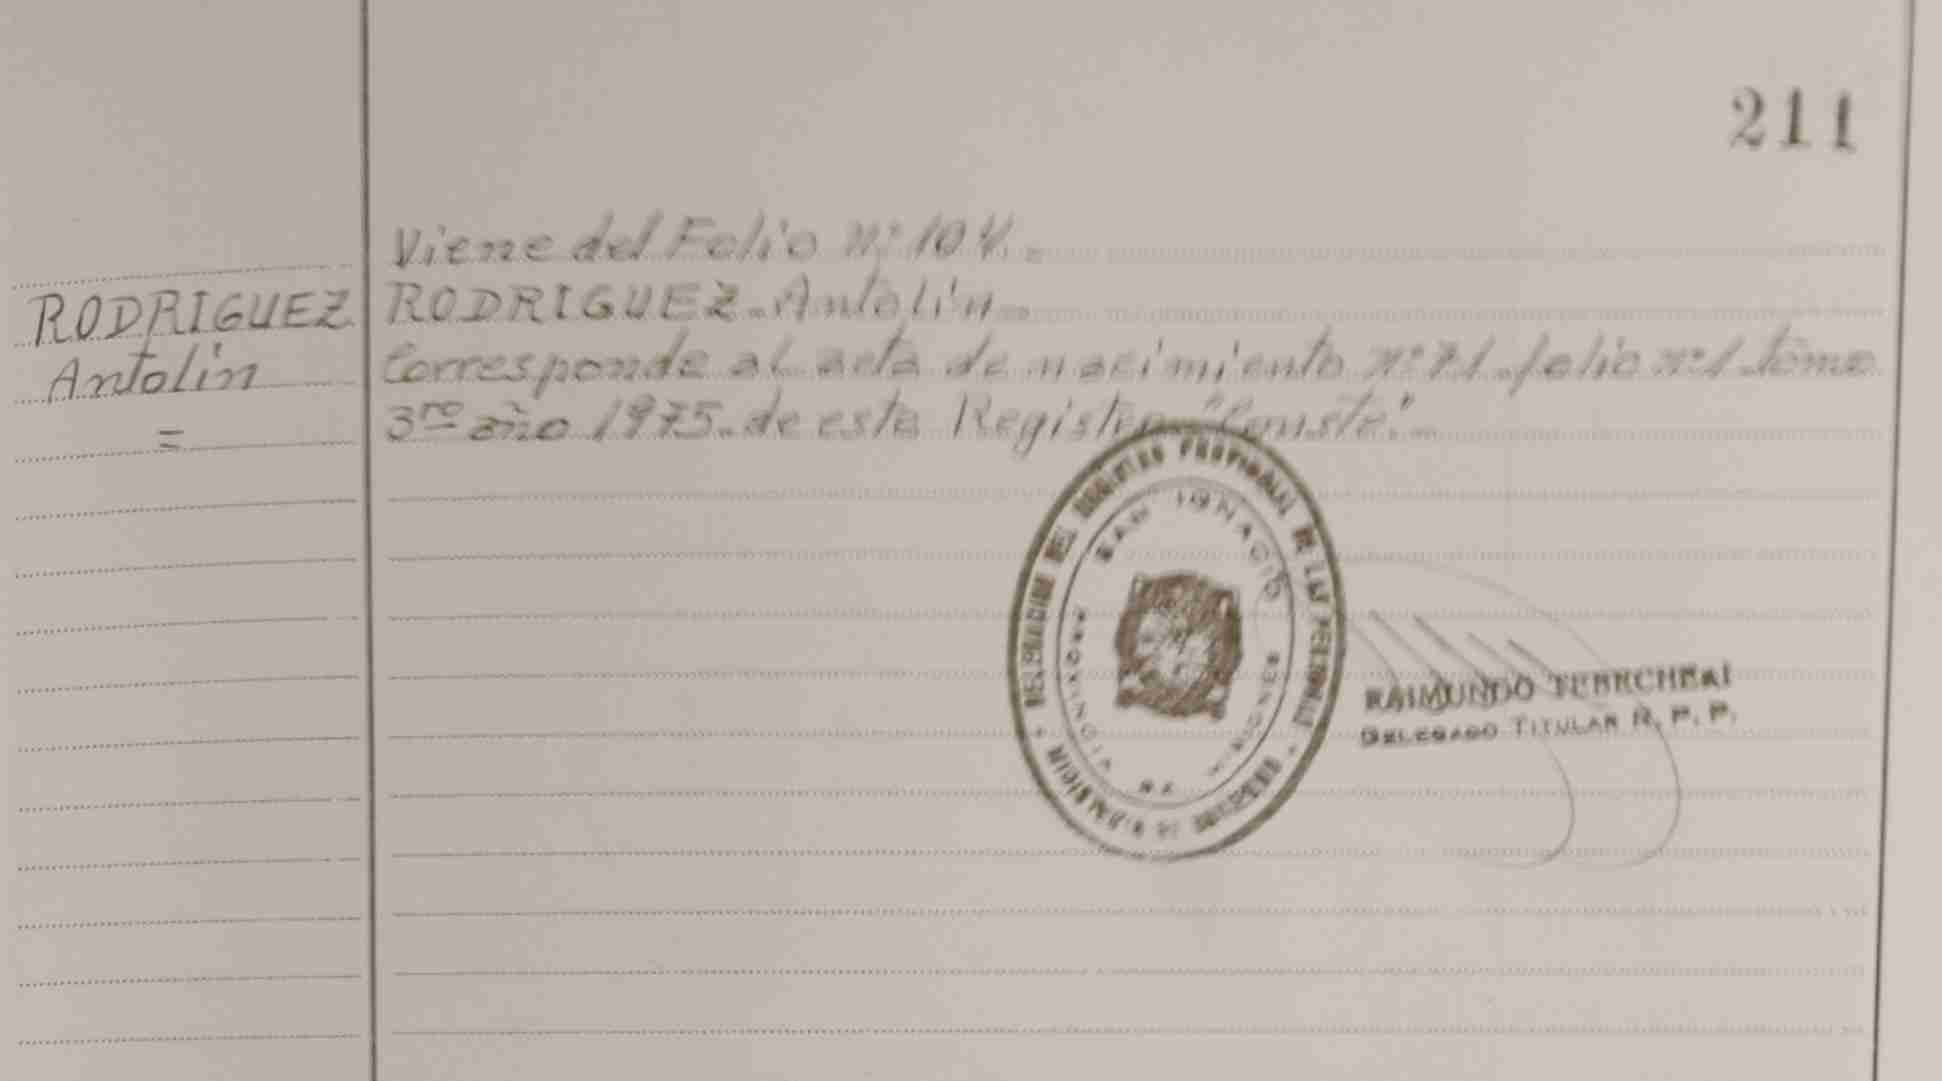 211
Viene del Folio Nº 104.-
RODRIGUEZ
Antolín
=
RODRIGUEZ.-Antolín.-
Corresponde al acta de nacimiento Nº 71.-folio Nº 1.-tomo
3ro año 1975.-de este Registro "Conste".-
DELEGACION DEL REGISTRO PROVINCIAL DE LAS PERSONAS
SAN IGNACIO
MISIONES
RAIMUNDO
DELEGADO TITULAR R. P. P.